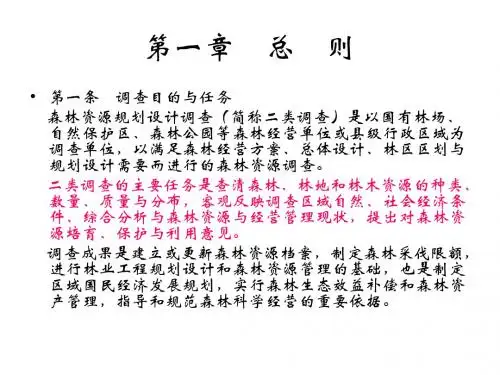 第一章　总　则
• 第一条　调查目的与任务
森林资源规划设计调查（简称二类调查）是以国有林场、
自然保护区、森林公园等森林经营单位或县级行政区域为
调查单位，以满足森林经营方案、总体设计、林区区划与
规划设计需要而进行的森林资源调查。
二类调查的主要任务是查清森林、林地和林木资源的种类、
数量、质量与分布，客观反映调查区域自然、社会经济条
件、综合分析与森林资源与经营管理现状，提出对森林资
源培育、保护与利用意见。
调查成果是建立或更新森林资源档案，制定森林采伐限额，
进行林业工程规划设计和森林资源管理的基础，也是制定
区域国民经济发展规划，实行森林生态效益补偿和森林资
产管理，指导和规范森林科学经营的重要依据。